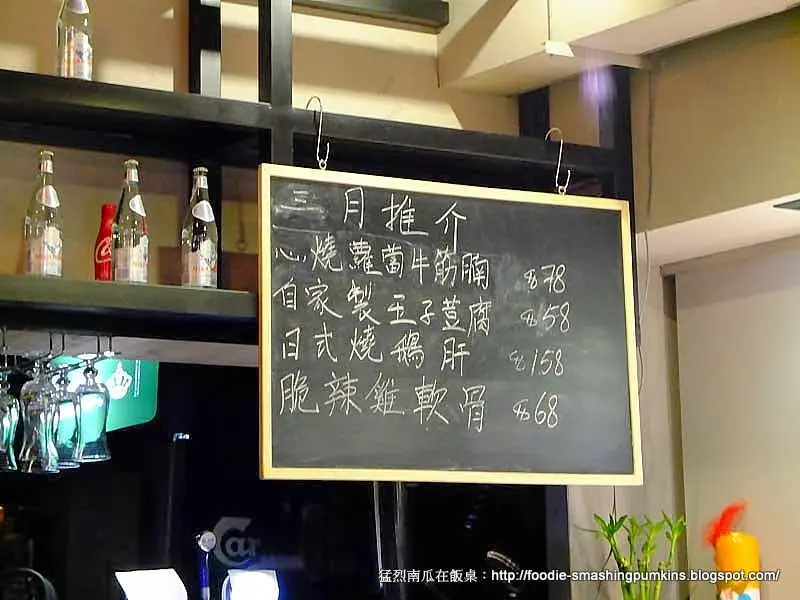 三月推介
心燒蘿蔔牛筋腩 $78
自家製玉子荳腐 $58
日式燒鵝肝 $158
脆辣雞軟骨 $68
Car
猛烈南瓜在飯桌：http://foodie-smashingpumkins.blogspot.com/